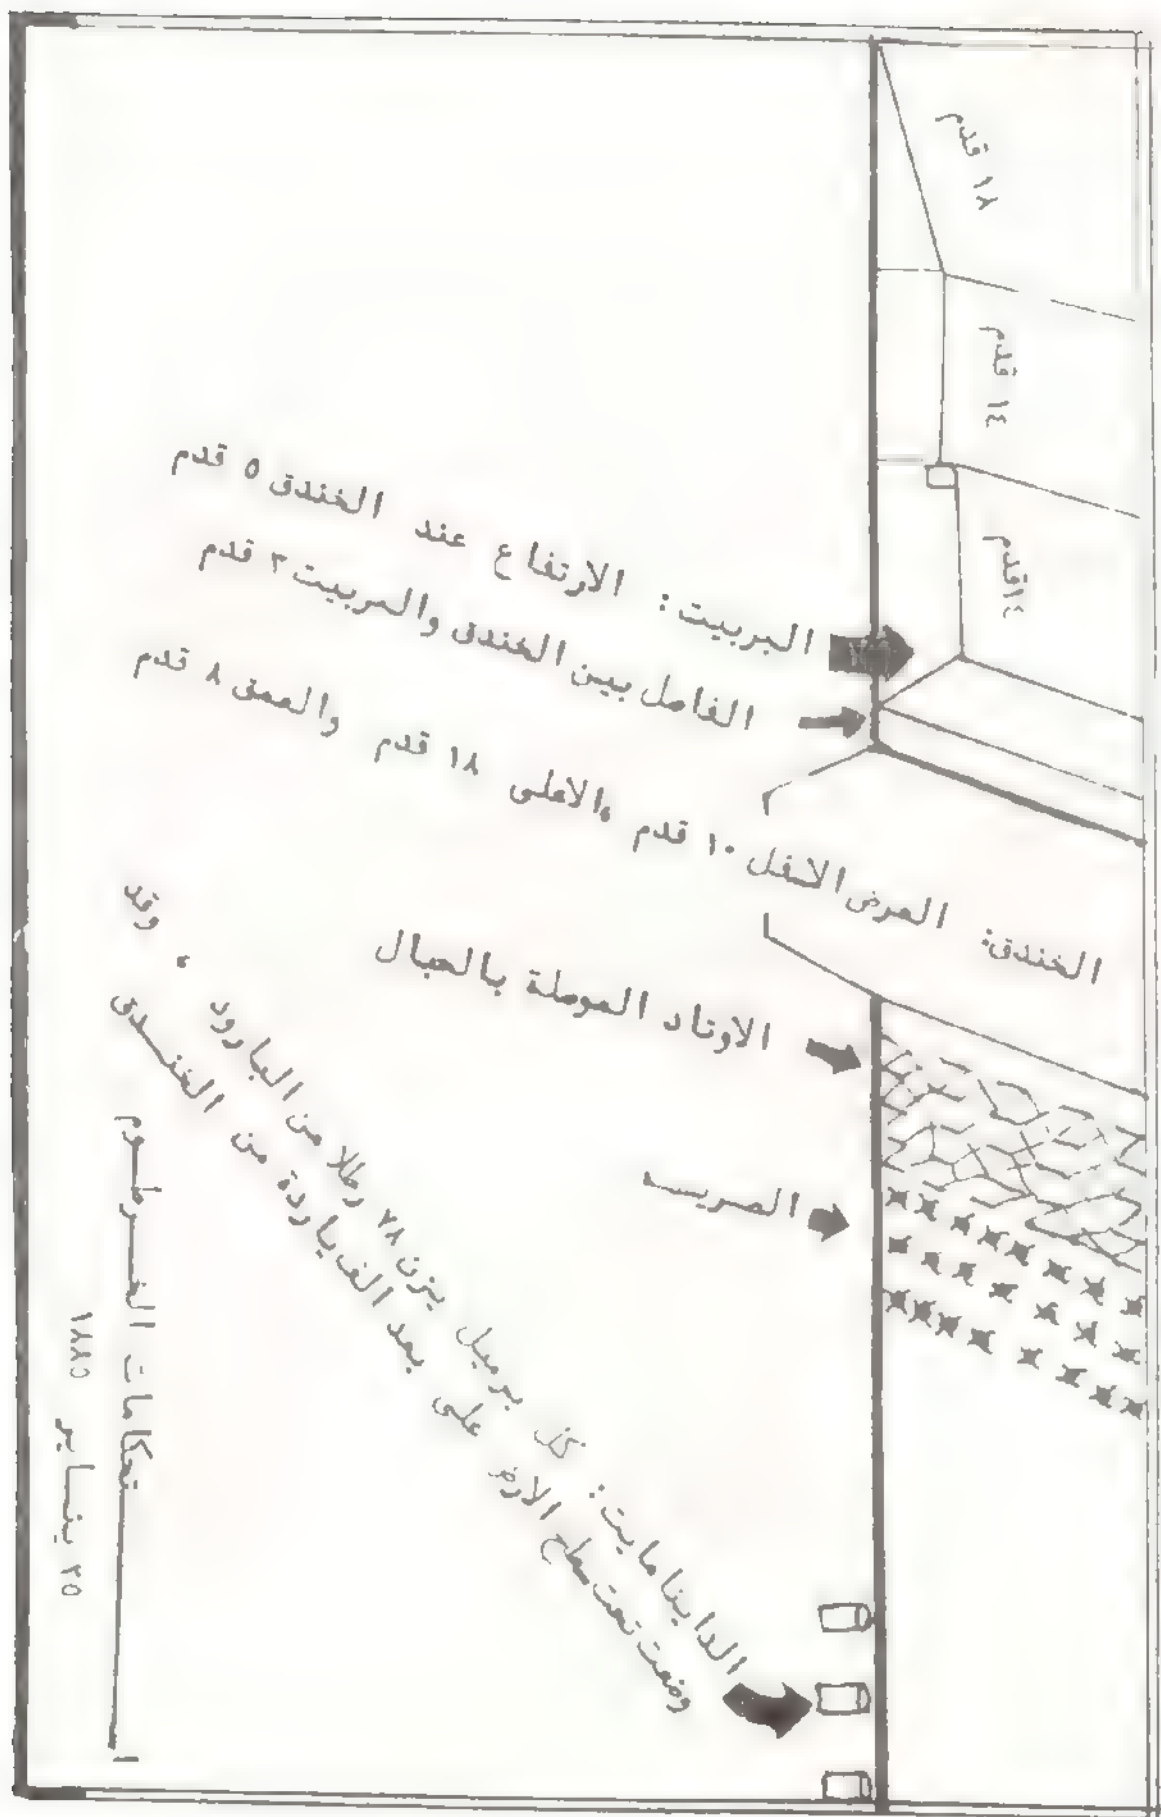 ١٨ قدم
١٤ قدم
١٤ قدم
البربيت: الارتفاع عند الخندق ٥ قدم
الفاصل بين الخندق والبربيت ٣ قدم
الخندق: العرض الاسفل ١٠ قدم ،الاعلى ١٨ قدم والعمق ٨ قدم
الاوتاد الموصلة بالحبال
الضريسه
الدايناميت: كل برميل يزن ٢٨ رطلا من البارود ، وقد
وضعت تحت سطح الارض على بعد الف ياردة من الخندق
تحكامات الخرطوم
٢٥ ينايـر ١٨٨٥